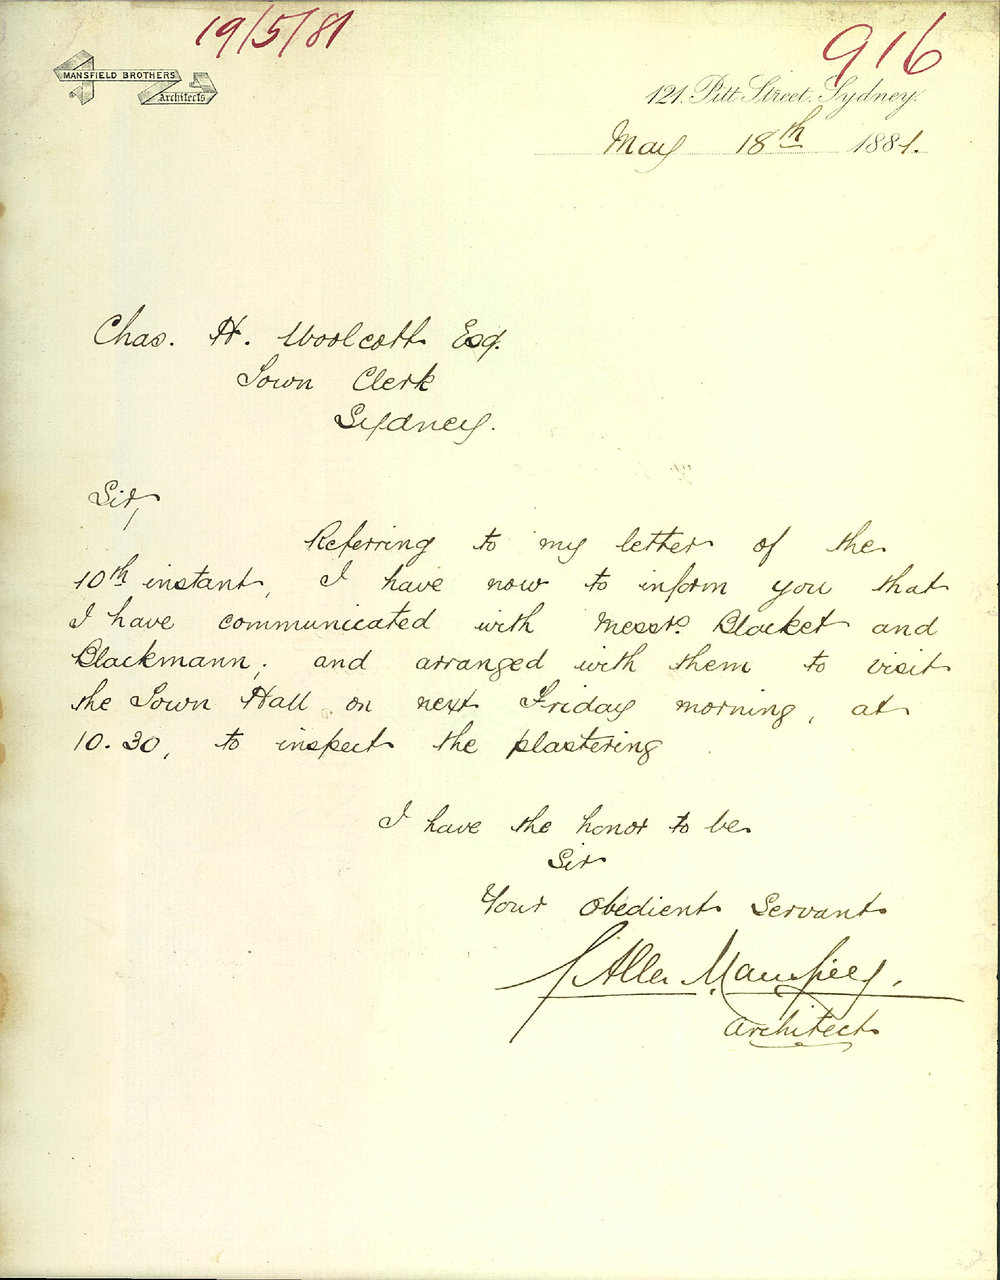 19/5/81
916
MANSFIELD BROTHERS
Architects
121. Pitt Street. Sydney.
May 18th 1881.
Chas. H. Woolcott Esq.
Town Clerk
Sydney.
Sir,
Referring to my letter of the
10th instant, I have now to inform you that
I have communicated with Messrs. Blacket and
Blackmann; and arranged with them to visit
the Town Hall on next Friday morning, at
10.30, to inspect the plastering
I have the honor to be
Sir
Your obedient Servant
G Allen Mansfield.
Architect